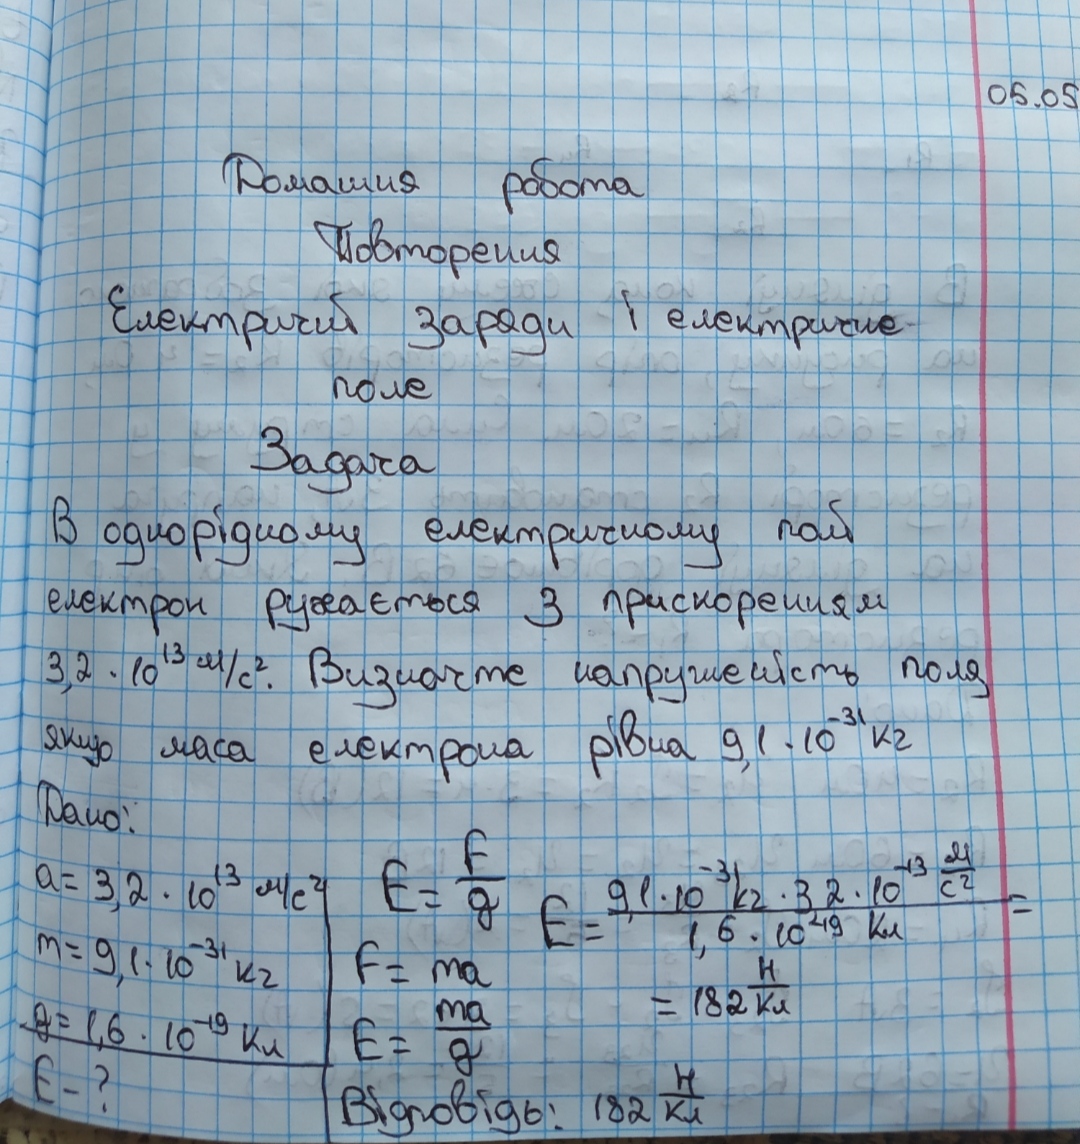 05.05
Домашня робота
Повторення
Електричні заряди і електричне
поле
Задача
В однорідному електричному полі
електрон рухається з прискоренням
3,2 · 10¹³ м/с². Визначте напруженість поля
якщо маса електрона рівна 9,1 · 10⁻³¹ кг
Дано:
a = 3,2 · 10¹³ м/с²
m = 9,1 · 10⁻³¹ кг
q = 1,6 · 10⁻¹⁹ Кл
E - ?
E = F/q
F = ma
E = ma/q
E = 9,1 · 10⁻³¹ кг · 3,2 · 10⁻¹³ м/с² / 1,6 · 10⁻¹⁹ Кл =
= 182 Н/Кл
Відповідь: 182 Н/Кл